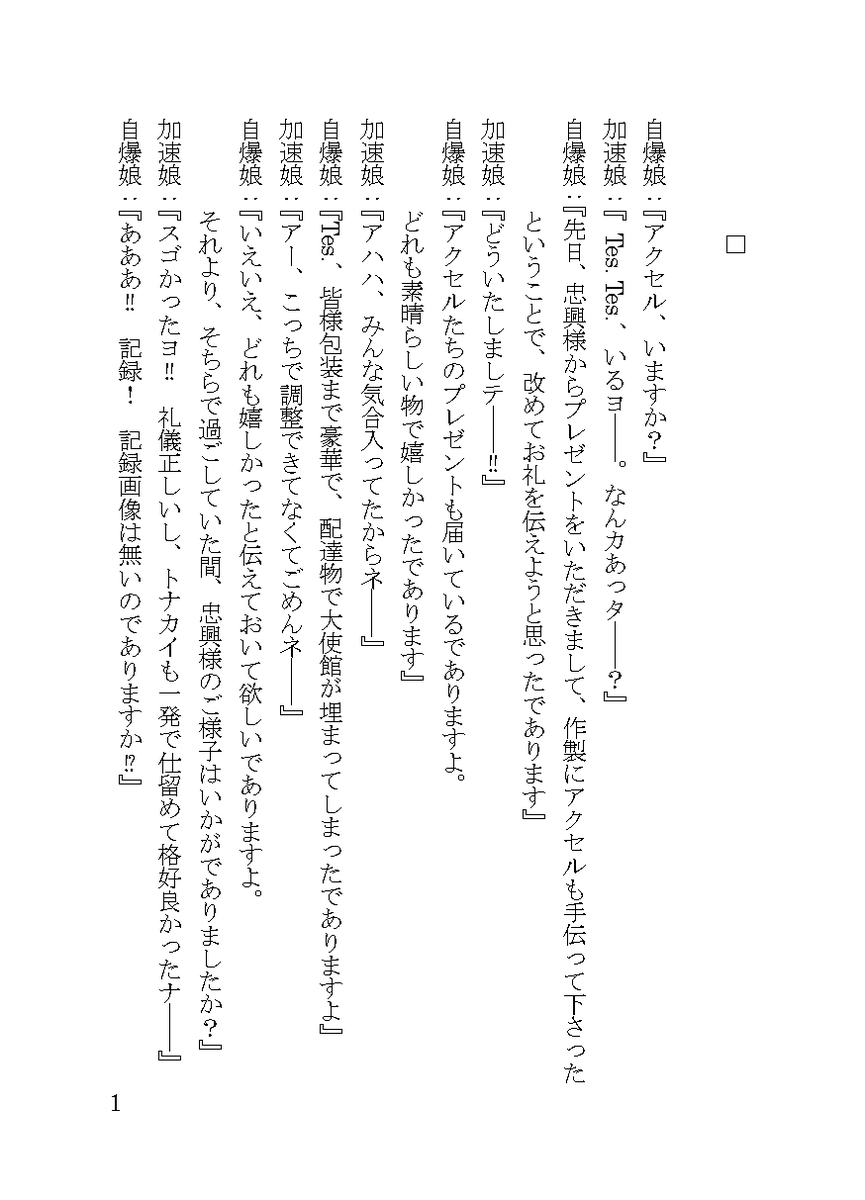 □
自爆娘：『アクセル、いますか？』
加速娘：『Tes. Tes.、いるヨ――。なんカあっタ――？』
自爆娘：『先日、忠興様からプレゼントをいただきまして、作製にアクセルも手伝って下さった
ということで、改めてお礼を伝えようと思ったであります』
加速娘：『どういたしましテ――‼』
自爆娘：『アクセルたちのプレゼントも届いているでありますよ。
どれも素晴らしい物で嬉しかったであります』
加速娘：『アハハ、みんな気合入ってたからネ――』
自爆娘：『Tes.、皆様包装まで豪華で、配達物で大使館が埋まってしまったでありますよ』
加速娘：『アー、こっちで調整できてなくてごめんネ――』
自爆娘：『いえいえ、どれも嬉しかったと伝えておいて欲しいでありますよ。
それより、そちらで過ごしていた間、忠興様のご様子はいかがでありましたか？』
加速娘：『スゴかったヨ‼　礼儀正しいし、トナカイも一発で仕留めて格好良かったナ――』
自爆娘：『あああ‼　記録！　記録画像は無いのでありますか⁉』
1